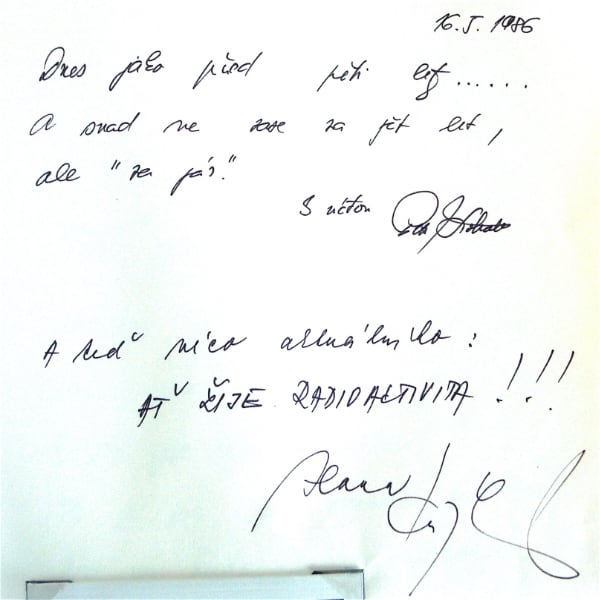 16. 5. 1986
Dnes jako před pěti lety......
A snad ne zase za pět let,
ale "za pár."
S úctou Petr
A teď něco aktuálního:
AŤ ŽIJE RADIOACTIVITA !!!
Hana